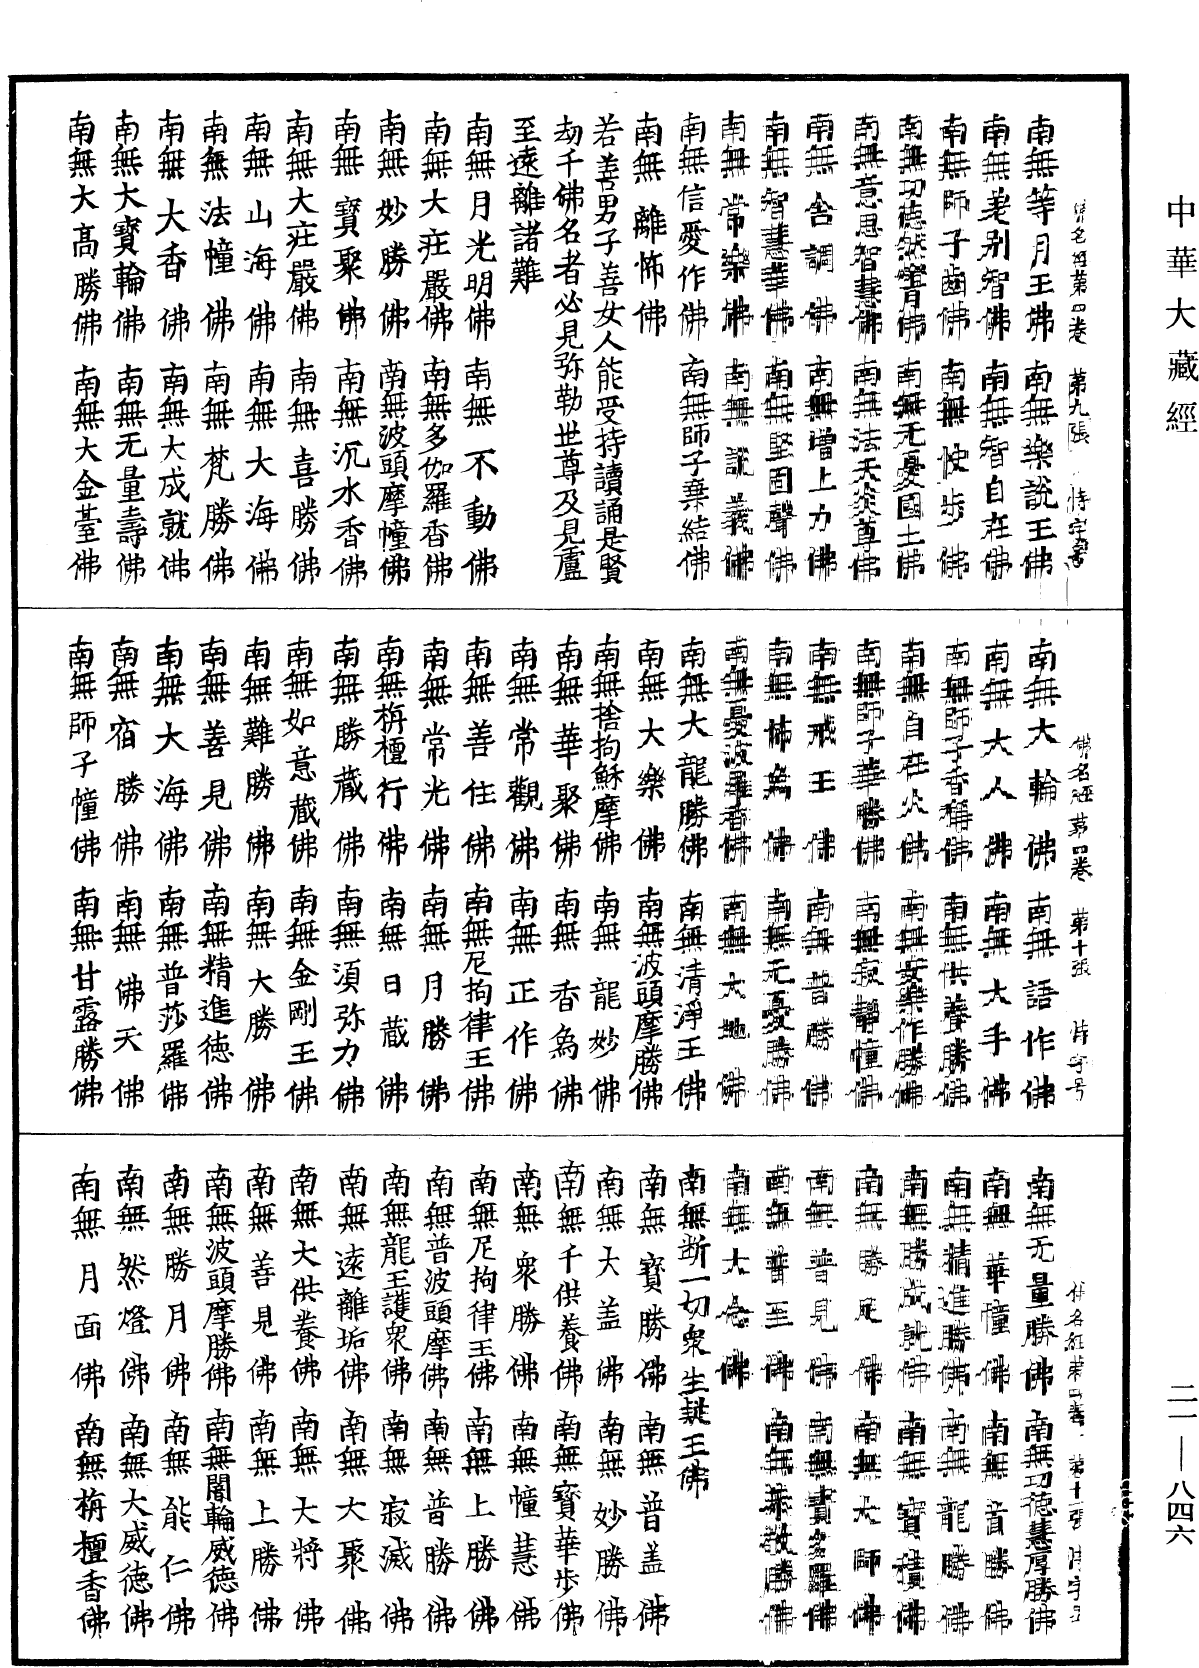 中華大藏經
二一—八四六
佛名經第四卷 第九張 恃字号
南無等月王佛 南無樂說王佛
南無差別智佛 南無智自在佛
南無師子齒佛 南無快步佛
南無功德然燈佛 南無无憂國土佛
南無意思智慧佛 南無法天㷼尊佛
南無舍調佛 南無增上力佛
南無智慧華佛 南無堅固聲佛
南無常樂佛 南無說義佛
南無信愛作佛 南無師子棄結佛
南無離怖佛
若善男子善女人能受持讀誦是賢
劫千佛名者必見弥勒世尊及見盧
至遠離諸難
南無月光明佛 南無不動佛
南無大莊嚴佛 南無多伽羅香佛
南無妙勝佛 南無波頭摩幢佛
南無寶聚佛 南無沉水香佛
南無大莊嚴佛 南無喜勝佛
南無山海佛 南無大海佛
南無法幢佛 南無梵勝佛
南無大香佛 南無大成就佛
南無大寶輪佛 南無无量壽佛
南無大高勝佛 南無大金臺佛
佛名經第四卷 第十張 恃字号
南無大輪佛 南無語作佛
南無大人佛 南無大手佛
南無師子香稱佛 南無供養勝佛
南無自在火佛 南無安樂作勝佛
南無師子華勝佛 南無寂靜幢佛
南無戒王佛 南無普勝佛
南無怖為佛 南無无憂勝佛
南無憂波羅香佛 南無大地佛
南無大龍勝佛 南無清淨王佛
南無大樂佛 南無波頭摩勝佛
南無捨拘蘇摩佛 南無龍妙佛
南無華聚佛 南無香為佛
南無常觀佛 南無正作佛
南無善住佛 南無尼拘律王佛
南無常光佛 南無月勝佛
南無栴檀行佛 南無日藏佛
南無勝藏佛 南無須弥力佛
南無如意藏佛 南無金剛王佛
南無難勝佛 南無大勝佛
南無善見佛 南無精進德佛
南無大海佛 南無普莎羅佛
南無宿勝佛 南無佛天佛
南無師子幢佛 南無甘露勝佛
佛名經第四卷 第十一張 恃字号
南無无量勝佛 南無功德慧厚勝佛
南無華幢佛 南無音勝佛
南無精進勝佛 南無龍勝佛
南無勝成就佛 南無寶積佛
南無勝足佛 南無大師佛
南無普見佛 南無賣多羅佛
南無普至佛 南無恭敬勝佛
南無大念佛
南無断一切衆生疑王佛
南無寶勝佛 南無普盖佛
南無大盖佛 南無妙勝佛
南無千供養佛 南無寶華步佛
南無衆勝佛 南無幢慧佛
南無尼拘律王佛 南無上勝佛
南無普波頭摩佛 南無普勝佛
南無龍王護衆佛 南無寂滅佛
南無遠離垢佛 南無大聚佛
南無大供養佛 南無大將佛
南無善見佛 南無上勝佛
南無波頭摩勝佛 南無闇輪威德佛
南無勝月佛 南無能仁佛
南無然燈佛 南無大威德佛
南無月面佛 南無栴檀香佛